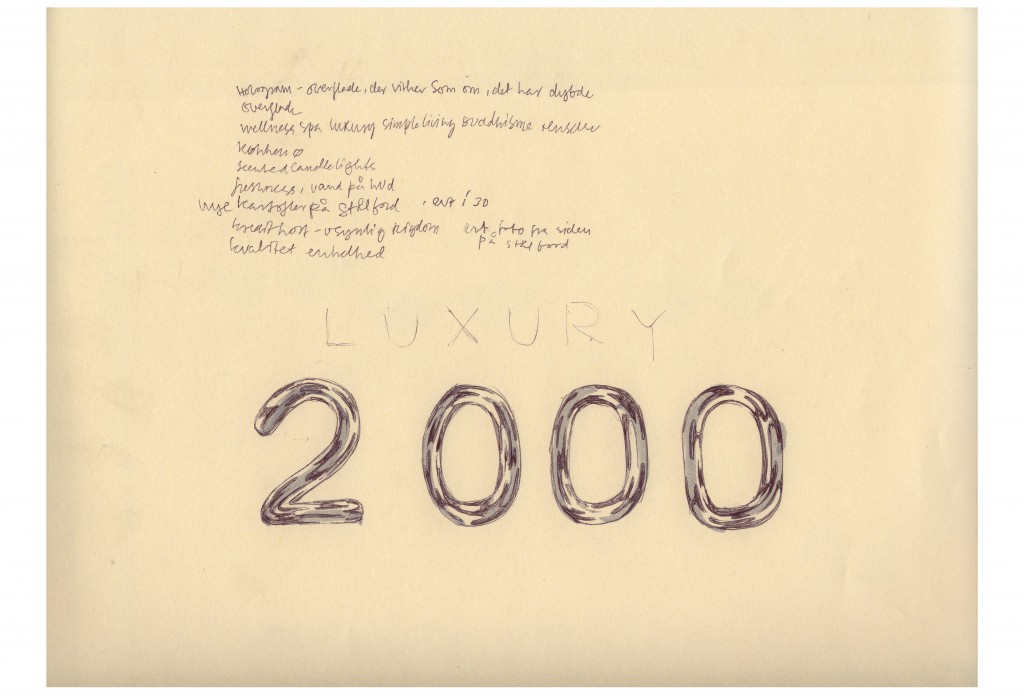 Hologram - overflade, der virker som om, det har dybde
overflade
wellness spa luxury simple living Buddhisme
Scented Candlelights
freshness, vand på hud
nye kartofler på stålfond . evt i 30
kreditkort - usynlig rigdom evt. foto fra siden
på stålfond
kvalitet enkelhed
LUXURY
2000